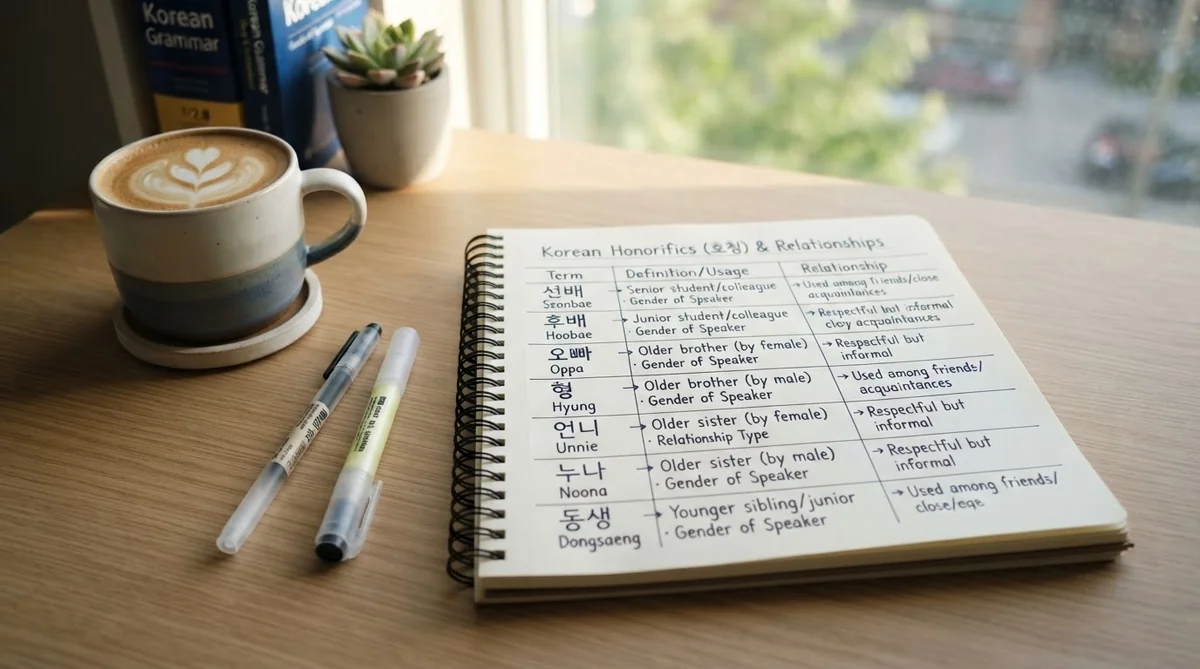 Korean
Grammar
Korean Honorifics (호칭) & Relationships
Term Definition/Usage Relationship
선배 → Senior student/colleague → Used among friends/close
Seonbae · Gender of Speaker acquaintances
후배 → Junior student/colleague → Respectful but informal
Hoobae · Gender of Speaker acquaintances
오빠 → Older brother (by female) → Respectful but
Oppa · Gender of Speaker informal
형 → Older brother (by male) → Used among friends/
Hyung · Gender of Speaker acquaintances
언니 → Older sister (by female) → Respectful but
Unnie · Relationship Type informal
누나 → Older sister (by male) → Respectful but
Noona · Gender of Speaker informal
동생 → Younger sibling/junior → Used among friends/
Dongsaeng · Gender of Speaker